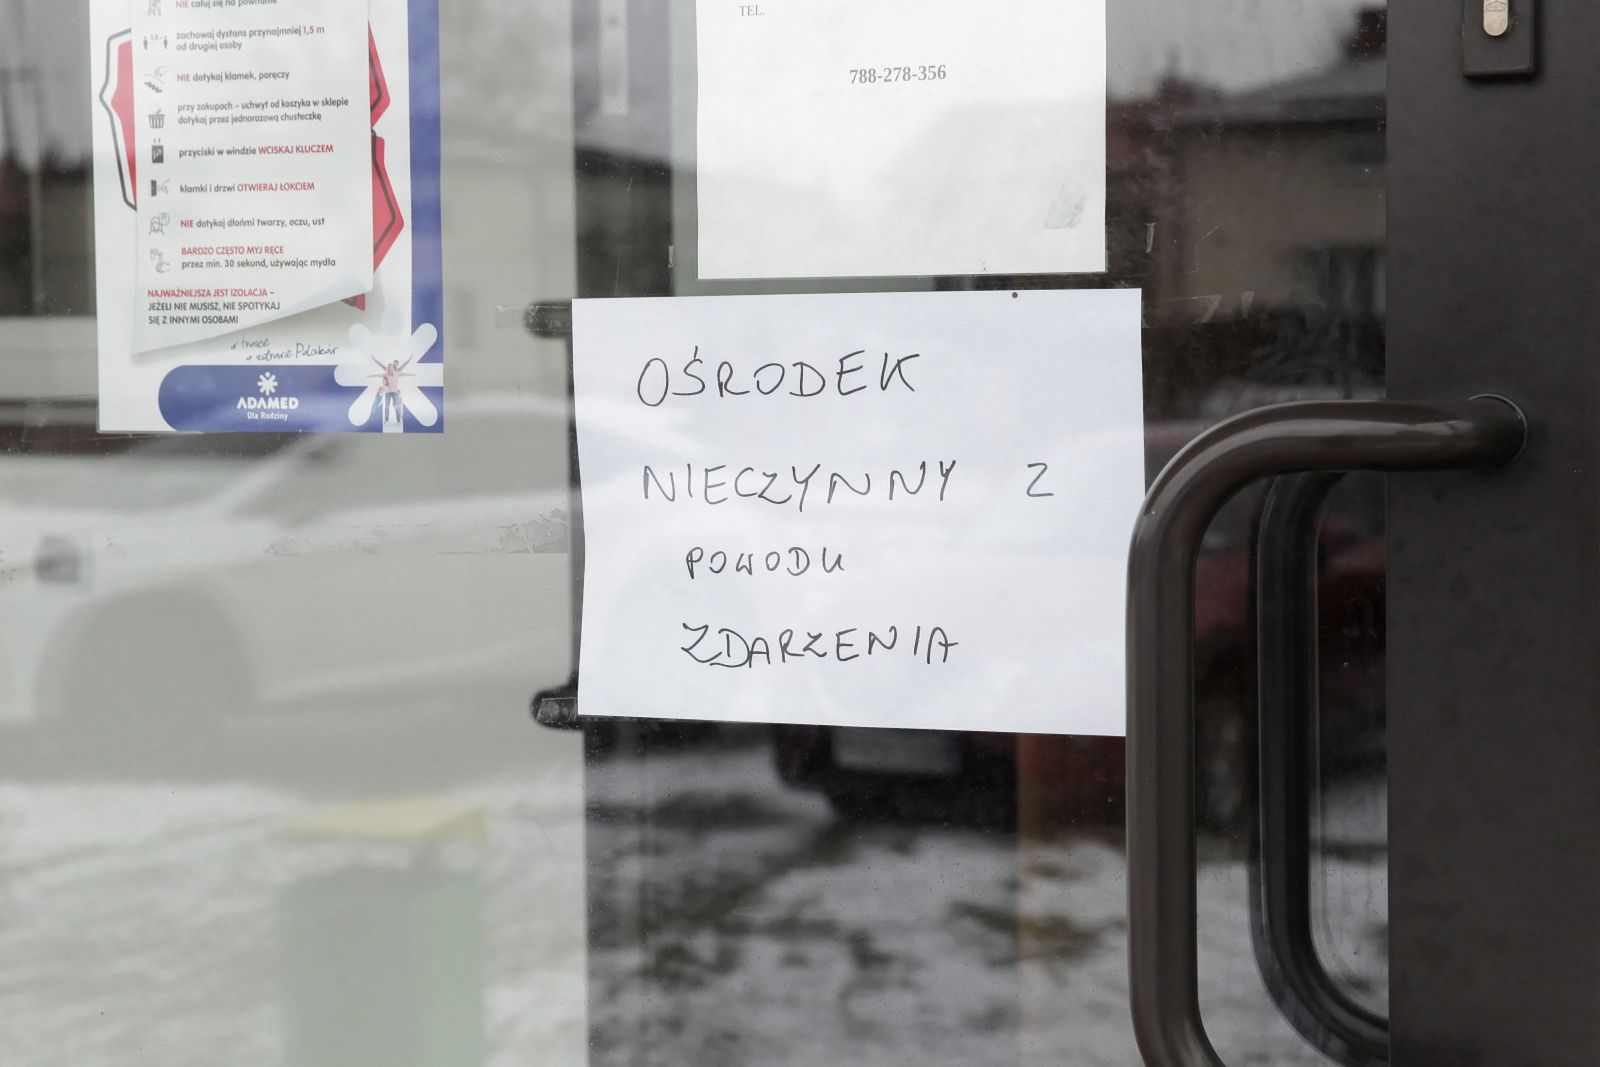 NIE całuj się na powitanie
zachowaj dystans przynajmniej 1,5 m
od drugiej osoby
NIE dotykaj klamek, poręczy
przy zakupach – uchwyt od koszyka w sklepie
dotykaj przez jednorazową chusteczkę
przyciski w windzie WCISKAJ KLUCZEM
klamki i drzwi OTWIERAJ ŁOKCIEM
NIE dotykaj dłońmi twarzy, oczu, ust
BARDZO CZĘSTO MYJ RĘCE
przez min. 30 sekund, używając mydła
NAJWAŻNIEJSZA JEST IZOLACJA –
JEŻELI NIE MUSISZ, NIE SPOTYKAJ
SIĘ Z INNYMI OSOBAMI
w trosce
o zdrowie Polaków
ADAMED
Dla Rodziny
TEL.
788-278-356
OŚRODEK
NIECZYNNY Z
POWODU
ZDARZENIA